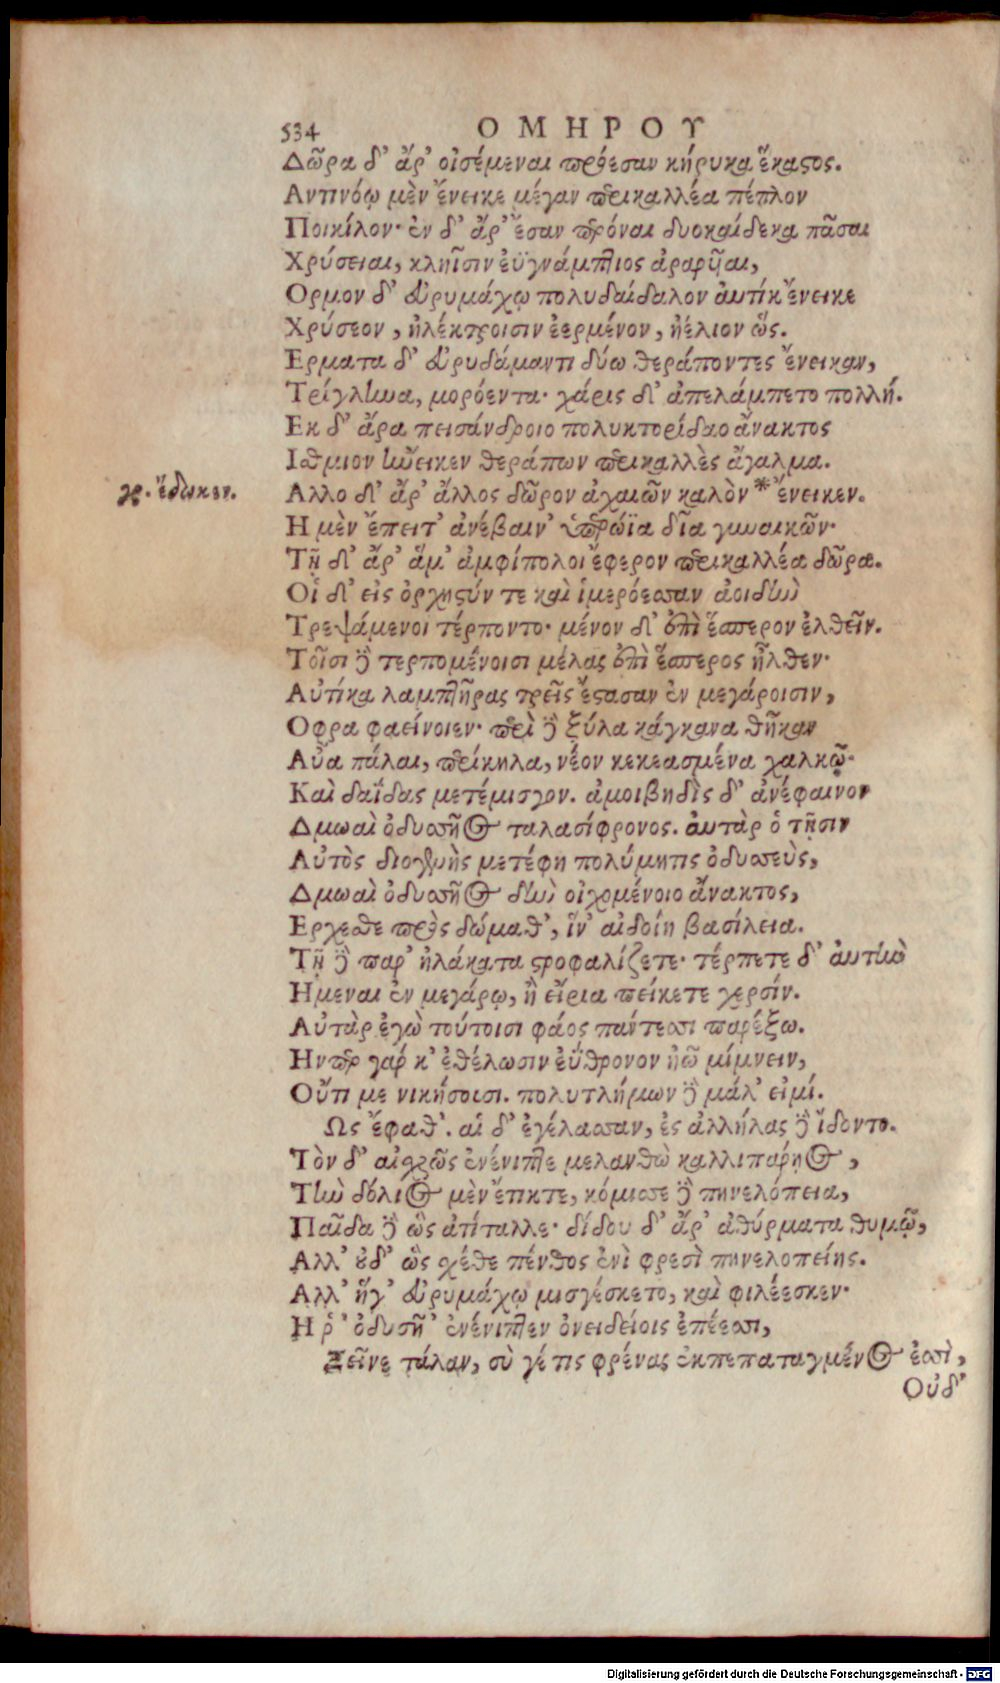 534 ΟΜΗΡΟΥ
Δῶρα δ' ἄρ' οἰσέμεναι πρόεσαν κήρυκα ἕκαστος.
Αντινόῳ μὲν ἔνεικε μέγαν περικαλλέα πέπλον
Ποικίλον· ἐν δ' ἄρ' ἔσαν περόναι δυοκαίδεκα πᾶσαι
Χρύσειαι, κληῗσιν ἐϋγνάμπτοις ἀραρυῖαι,
Ορμον δ' Εὐρυμάχῳ πολυδαίδαλον αὐτίκ' ἔνεικε
Χρύσεον, ἠλέκτροισιν ἐερμένον, ἠέλιον ὥς.
Ερματα δ' Εὐρυδάμαντι δύω θεράποντες ἔνεικαν,
Τρίγληνα, μορόεντα· χάρις δ' ἀπελάμπετο πολλή.
Εκ δ' ἄρα πεισάνδροιο πολυκτορίδαο ἄνακτος
Ιθμιον ἤνεικεν θεράπων περικαλλὲς ἄγαλμα.
γρ. ἔδωκεν.
Αλλο δ' ἄρ' ἄλλος δῶρον ἀχαιῶν καλὸν * ἔνεικεν.
Η μὲν ἔπειτ' ἀνέβαιν' ὑπερώϊα δῖα γυναικῶν·
Τῇ δ' ἄρ' ἅμ' ἀμφίπολοι ἔφερον περικαλλέα δῶρα.
Οἱ δ' εἰς ὀρχηστύν τε καὶ ἱμερόεσσαν ἀοιδὴν
Τρεψάμενοι τέρποντο· μένον δ' ἐπὶ ἕσπερον ἐλθεῖν.
Τοῖσι δὲ τερπομένοισι μέλας ἐπὶ ἕσπερος ἦλθεν·
Αὐτίκα λαμπτῆρας τρεῖς ἔστασαν ἐν μεγάροισιν,
Οφρα φαείνοιεν· περὶ δὲ ξύλα κάγκανα θῆκαν
Αὖα πάλαι, περίκηλα, νέον κεκεασμένα χαλκῷ·
Καὶ δαΐδας μετέμισγον. ἀμοιβηδὶς δ' ἀνέφαινον
Δμωαὶ ὀδυσσῆος ταλασίφρονος. αὐτὰρ ὁ τῇσιν
Αὐτὸς διογενὴς μετέφη πολύμητις ὀδυσσεὺς,
Δμωαὶ ὀδυσσῆος δὴν οἰχομένοιο ἄνακτος,
Ερχεσθε πρὸς δώμαθ', ἵν' αἰδοίη βασίλεια.
Τῇ δὲ παρ' ἠλάκατα στροφαλίζετε· τέρπετε δ' αὐτὴν
Ημεναι ἐν μεγάρῳ, ἢ εἴρια πείκετε χερσίν.
Αὐτὰρ ἐγὼ τούτοισι φάος πάντεσσι παρέξω.
Ην περ γάρ κ' ἐθέλωσιν ἐΰθρονον ἠῶ μίμνειν,
Οὔτι με νικήσουσι. πολυτλήμων δὲ μάλ' εἰμί.
Ως ἔφαθ'. αἱ δ' ἐγέλασσαν, ἐς ἀλλήλας δὲ ἴδοντο.
Τὸν δ' αἰσχρῶς ἐνένιπτε μελανθὼ καλλιπάρηος,
Τὴν δόλιος μὲν ἔτικτε, κόμισσε δὲ πηνελόπεια,
Παῖδα δὲ ὣς ἀτίταλλε· δίδου δ' ἄρ' ἀθύρματα θυμῷ,
Αλλ' οὐδ' ὣς σχέθε πένθος ἐνὶ φρεσὶ πηνελοπείης.
Αλλ' ἥγ' Εὐρυμάχῳ μισγέσκετο, καὶ φιλέεσκεν·
Η ῥ' ὀδυσῆ' ἐνένιπτεν ὀνειδείοις ἐπέεσσι,
Ξεῖνε τάλαν, σὺ γέ τις φρένας ἐκπεπαταγμένος ἐσσὶ,
Οὐδ'
Digitalisierung gefördert durch die Deutsche Forschungsgemeinschaft - DFG